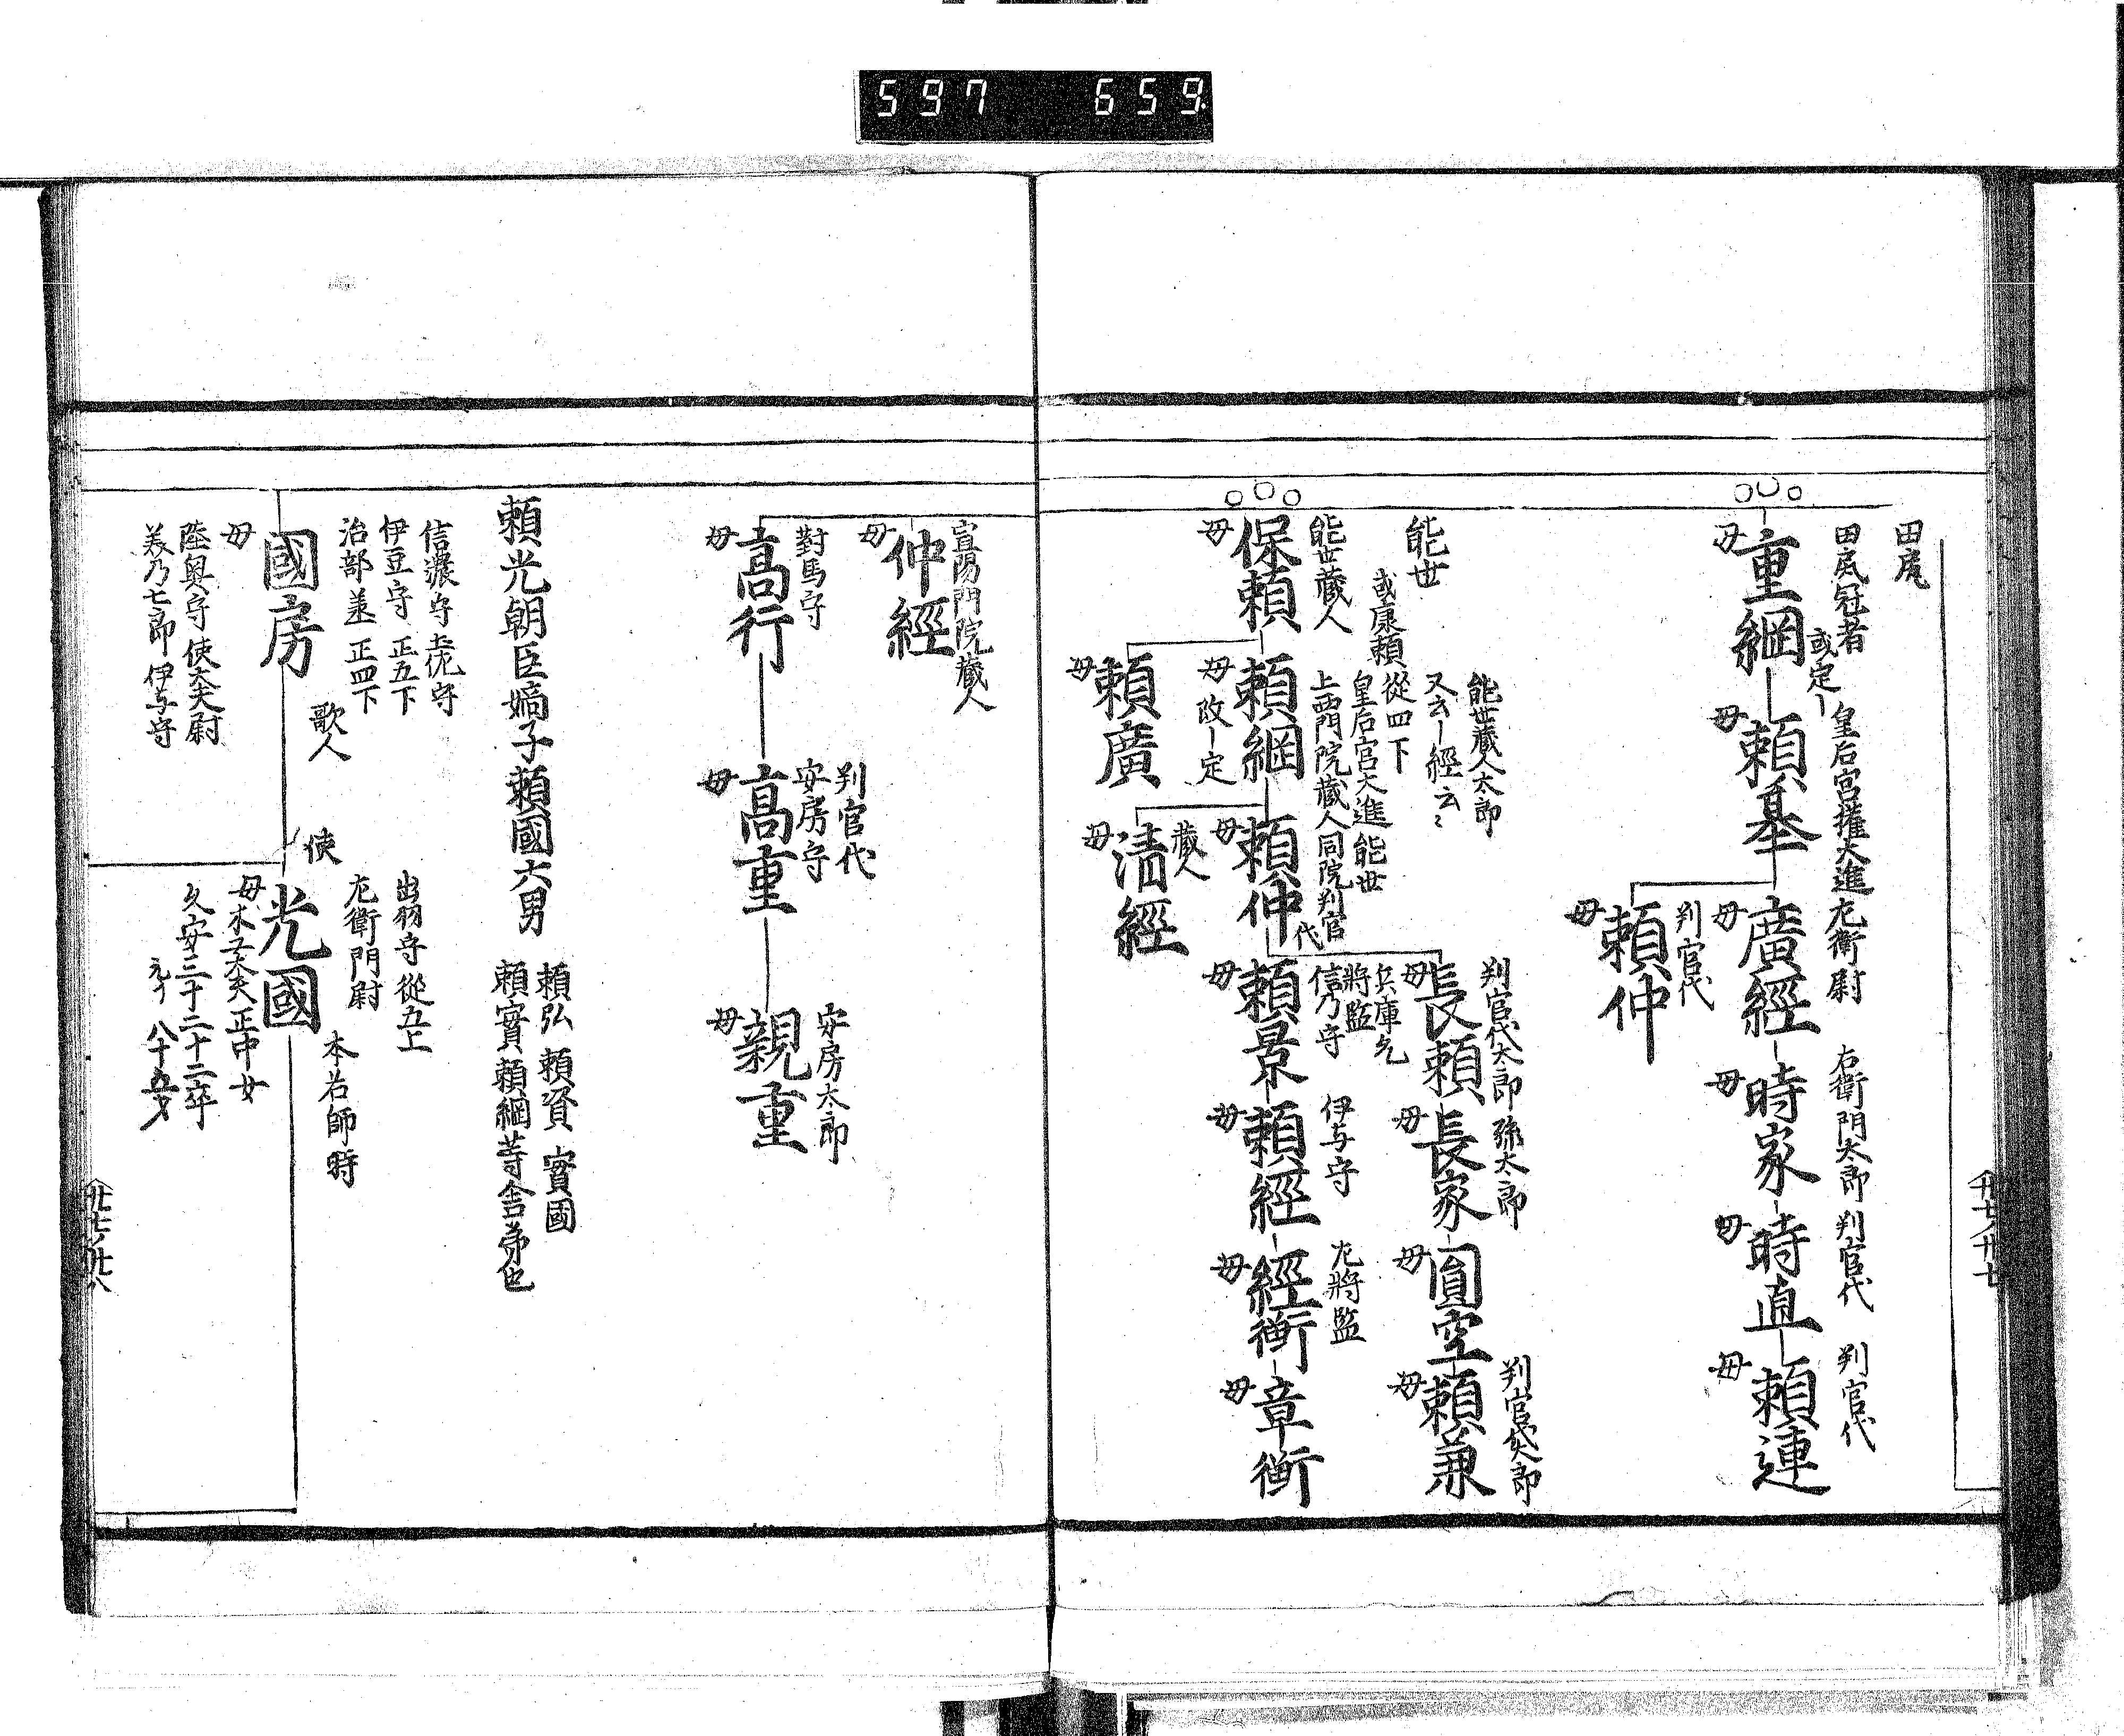 597 659
田尻
田尻冠者
或定―
母
重綱
皇后宮權大進
母
頼基
左衛尉
母
廣經
右衛門太郎
母
時家
判官代
母
時直
判官代
母
頼連
判官代
母
頼仲
能世
或康頼
能世藏人
母
保頼
能世藏人太郎
又云―經云〻
從四下
皇后宮大進 能世
上西門院藏人同院判官代
母
頼綱
改―定
母
頼廣
母
頼仲
藏人
母
清經
判官代太郎
母
長頼
弥太郎
母
長家
母
圓空
判官代太郎
母
頼兼
兵庫允
將監
信乃守
母
頼景
伊与守
母
頼經
左將監
母
經衡
母
章衡
宣陽門院藏人
母
仲經
對馬守
母
高行
判官代
安房守
母
高重
安房太郎
母
親重
頼光朝臣嫡子頼國六男
頼弘 頼資 實國
頼實 頼綱等舍弟也
信濃守 土佐守
伊豆守 正五下
治部丞 正四下
歌人
國房
母
陸奥守 使大夫尉
美乃七郎 伊与守
出羽守 從五上
左衛門尉
使
本名師時
光國
久安三十二十二卒
八十五才